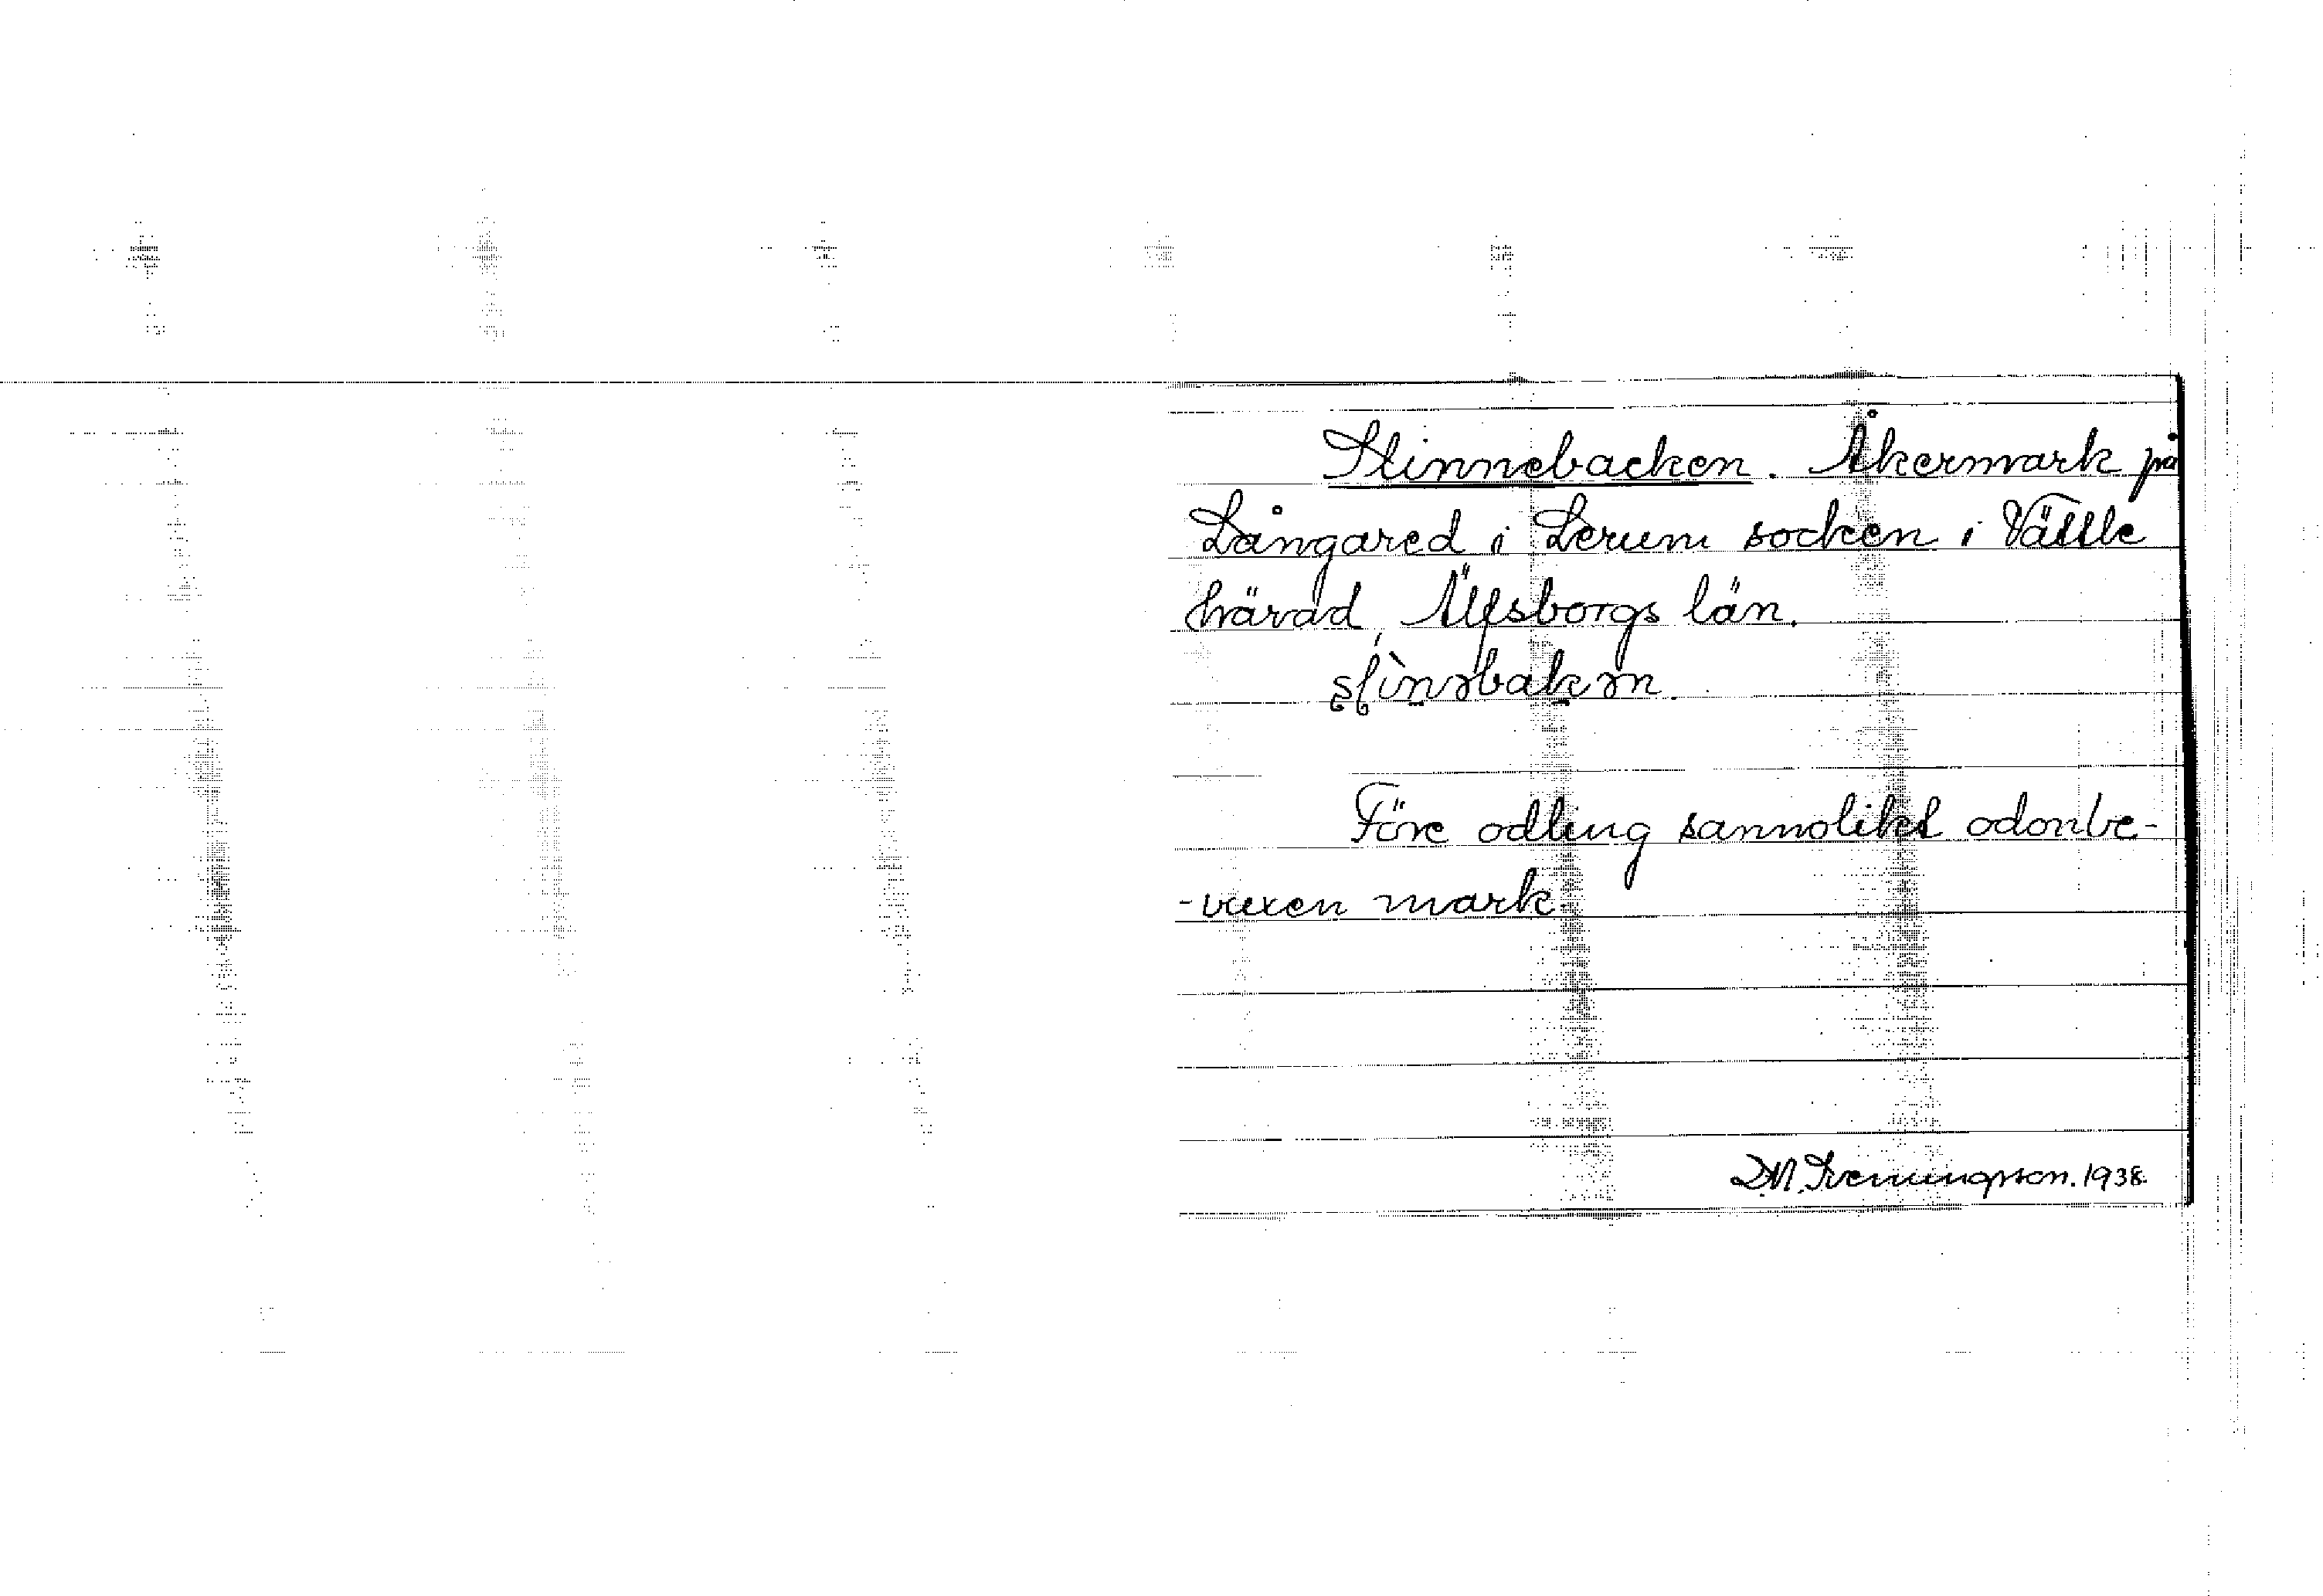 Slinnebacken. Åkermark på
Långared i Lerum socken i Vättle
härad, Älfsborgs län.
slìnəbakən.
Före odling sannolikt odonbe-
-vuxen mark.
1938.